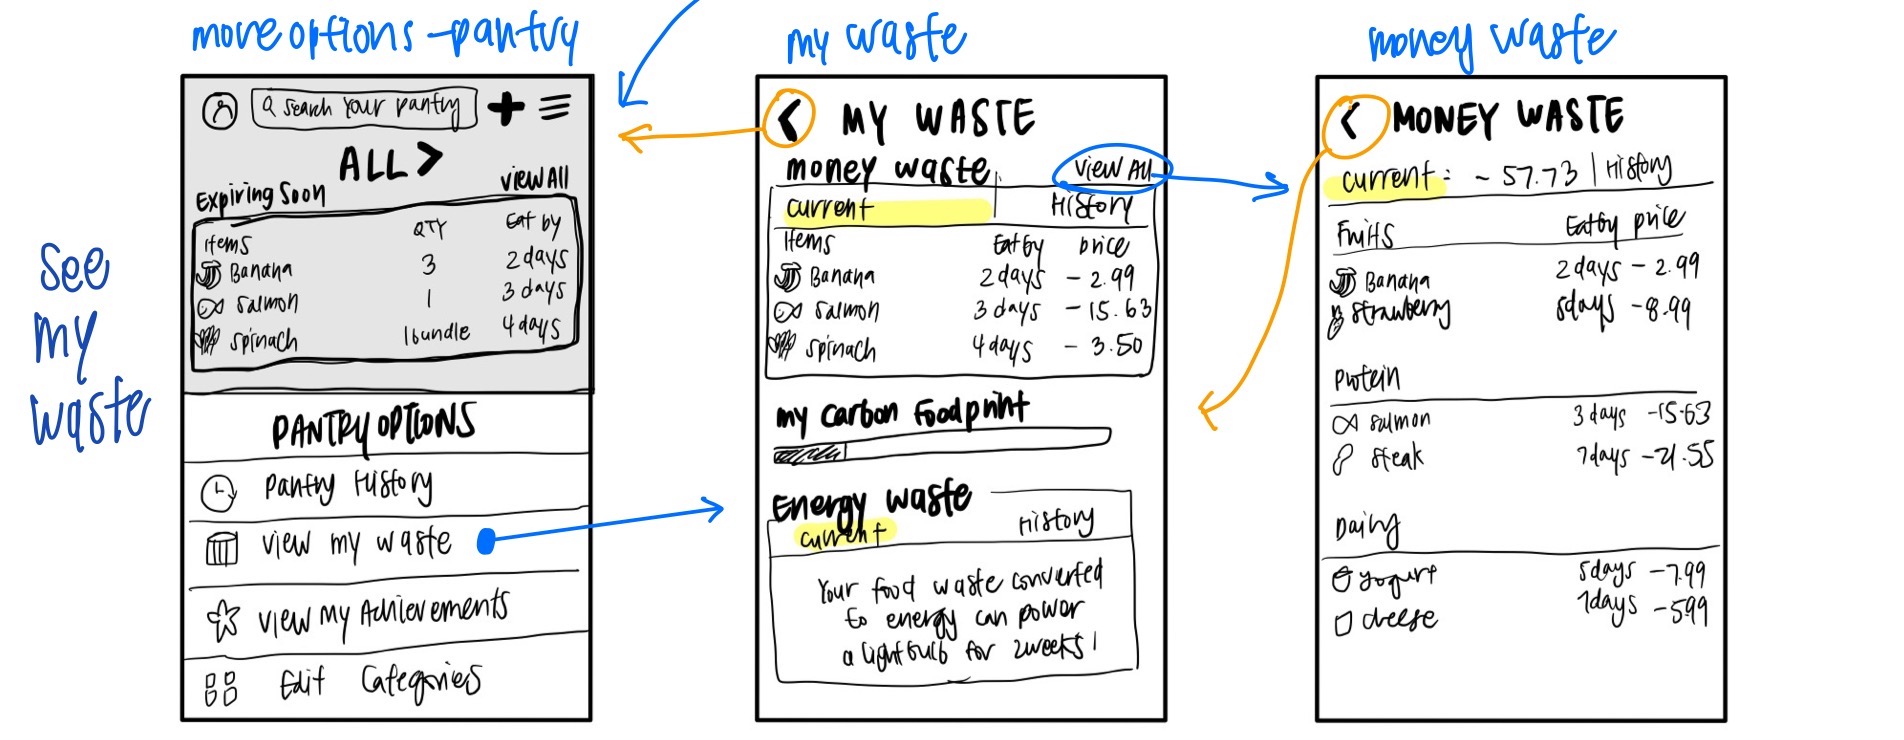 see
my
waste
more options - pantry
search your pantry
ALL >
Expiring Soon
view All
items QTY Eat by
Banana 3 2 days
salmon 1 3 days
spinach 1 bundle 4 days
PANTRY OPTIONS
Pantry History
view my waste
view my Achievements
Edit Categories
my waste
< MY WASTE
money waste
view All
current
History
items Eat by price
Banana 2 days - 2.99
salmon 3 days - 15.63
spinach 4 days - 3.50
my carbon foodprint
Energy waste
current
History
Your food waste converted
to energy can power
a lightbulb for 2 weeks!
money waste
< MONEY WASTE
current: ~ 57.73 | History
Fruits Eat by price
Banana 2 days - 2.99
strawberry 5 days - 8.99
Protein
salmon 3 days - 15.63
steak 7 days - 21.55
Dairy
yogurt 5 days - 7.99
cheese 7 days - 599